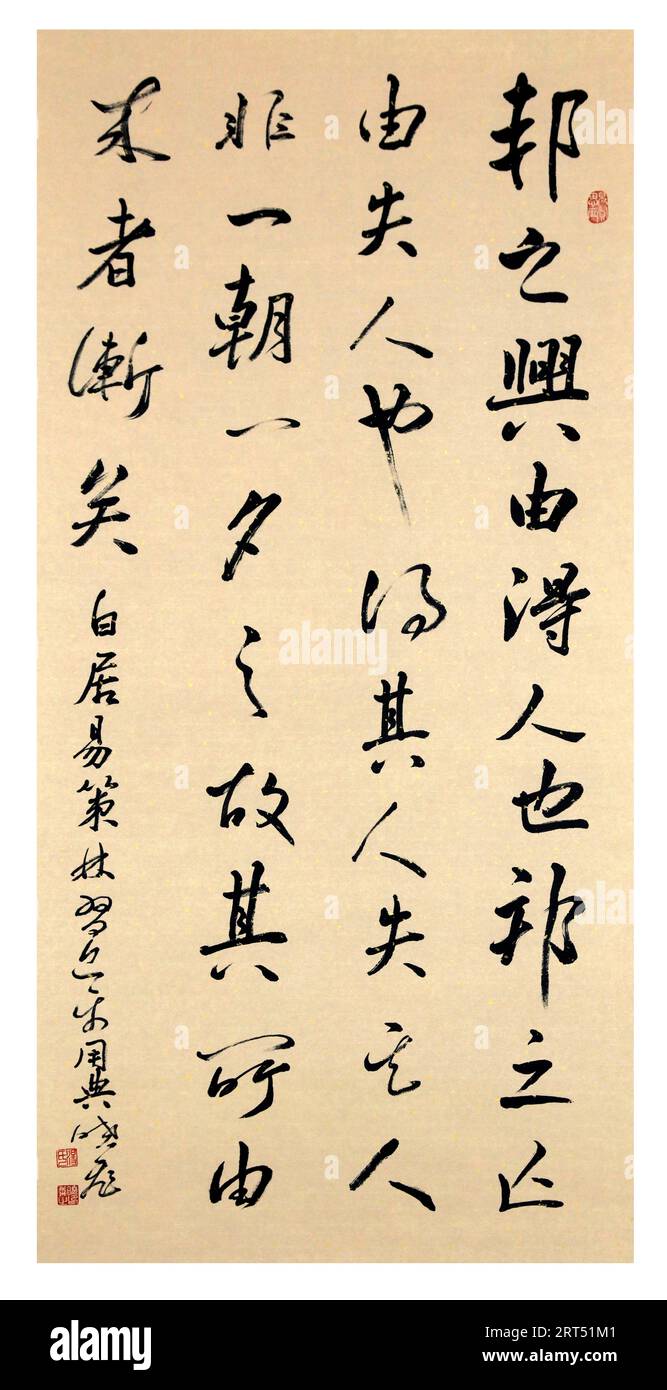 邦之興由得人也邦之亡
由失人也得其人失其人
非一朝一夕之故其所由
来者漸矣
白居易策林習近平用典
alamy
alamy
Image ID: 2RT51M1
www.alamy.com